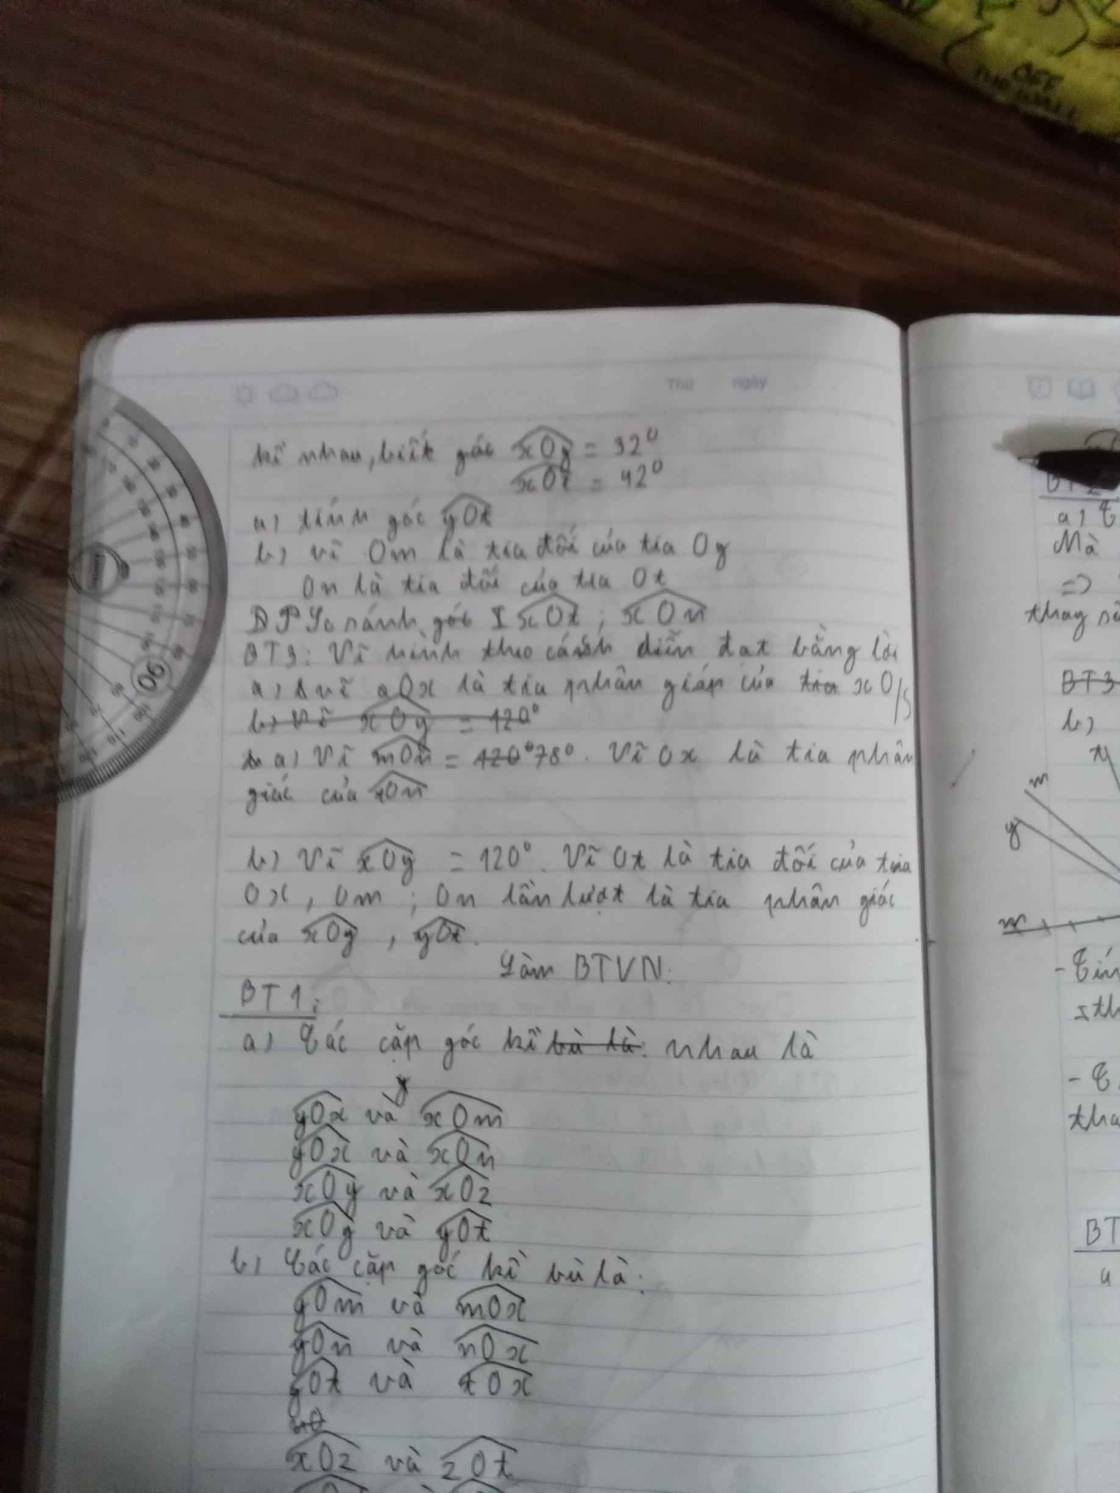 OEE
Thứ ngày
kề nhau, biết góc xOy = 32⁰
xOt = 42⁰
a, tính góc yOt
b, vẽ Om là tia đối của tia Oy
On là tia đối của tia Ot
So sánh góc xOt ; xOn
BT3: Vẽ hình theo cách diễn đạt bằng lời
a, vẽ Ox là tia phân giác của tia xO
b, Vẽ xOy = 120⁰
a, Vẽ mOn = 120⁰ 78⁰. Vẽ Ox là tia phân
giác của mOn
b, Vẽ xOy = 120⁰. Vẽ Ot là tia đối của tia
Ox, Om ; On lần lượt là tia phân giác
của xOy , yOt.
Làm BTVN:
BT1:
a, Các cặp góc kề bù là: nhau là
yOx và xOm
yOx và xOn
xOy và xOz
xOy và yOt
b, Các cặp góc kề bù là:
yOm và mOx
yOn và nOx
yOt và tOx
xOz và zOt
90
BT2
a,
Mà
=>
thay số
BT3
b,
m
y
m
- Tín
- 
tha
BT
a